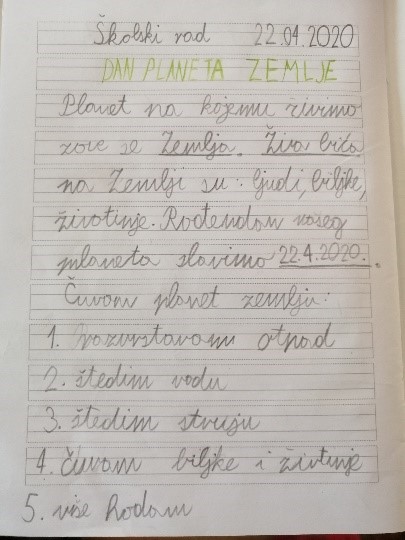 Školski rad 22.04.2020
DAN PLANETA ZEMLJE
Planet na kojemu živimo
zove se Zemlja. Živa bića
na Zemlji su: ljudi, biljke,
životinje. Rođendan našeg
planeta slavimo 22.4.2020.
Čuvam planet zemlju:
1. razvrstavam otpad
2. štedim vodu
3. štedim struju
4. čuvam biljke i živtinje
5. više hodam